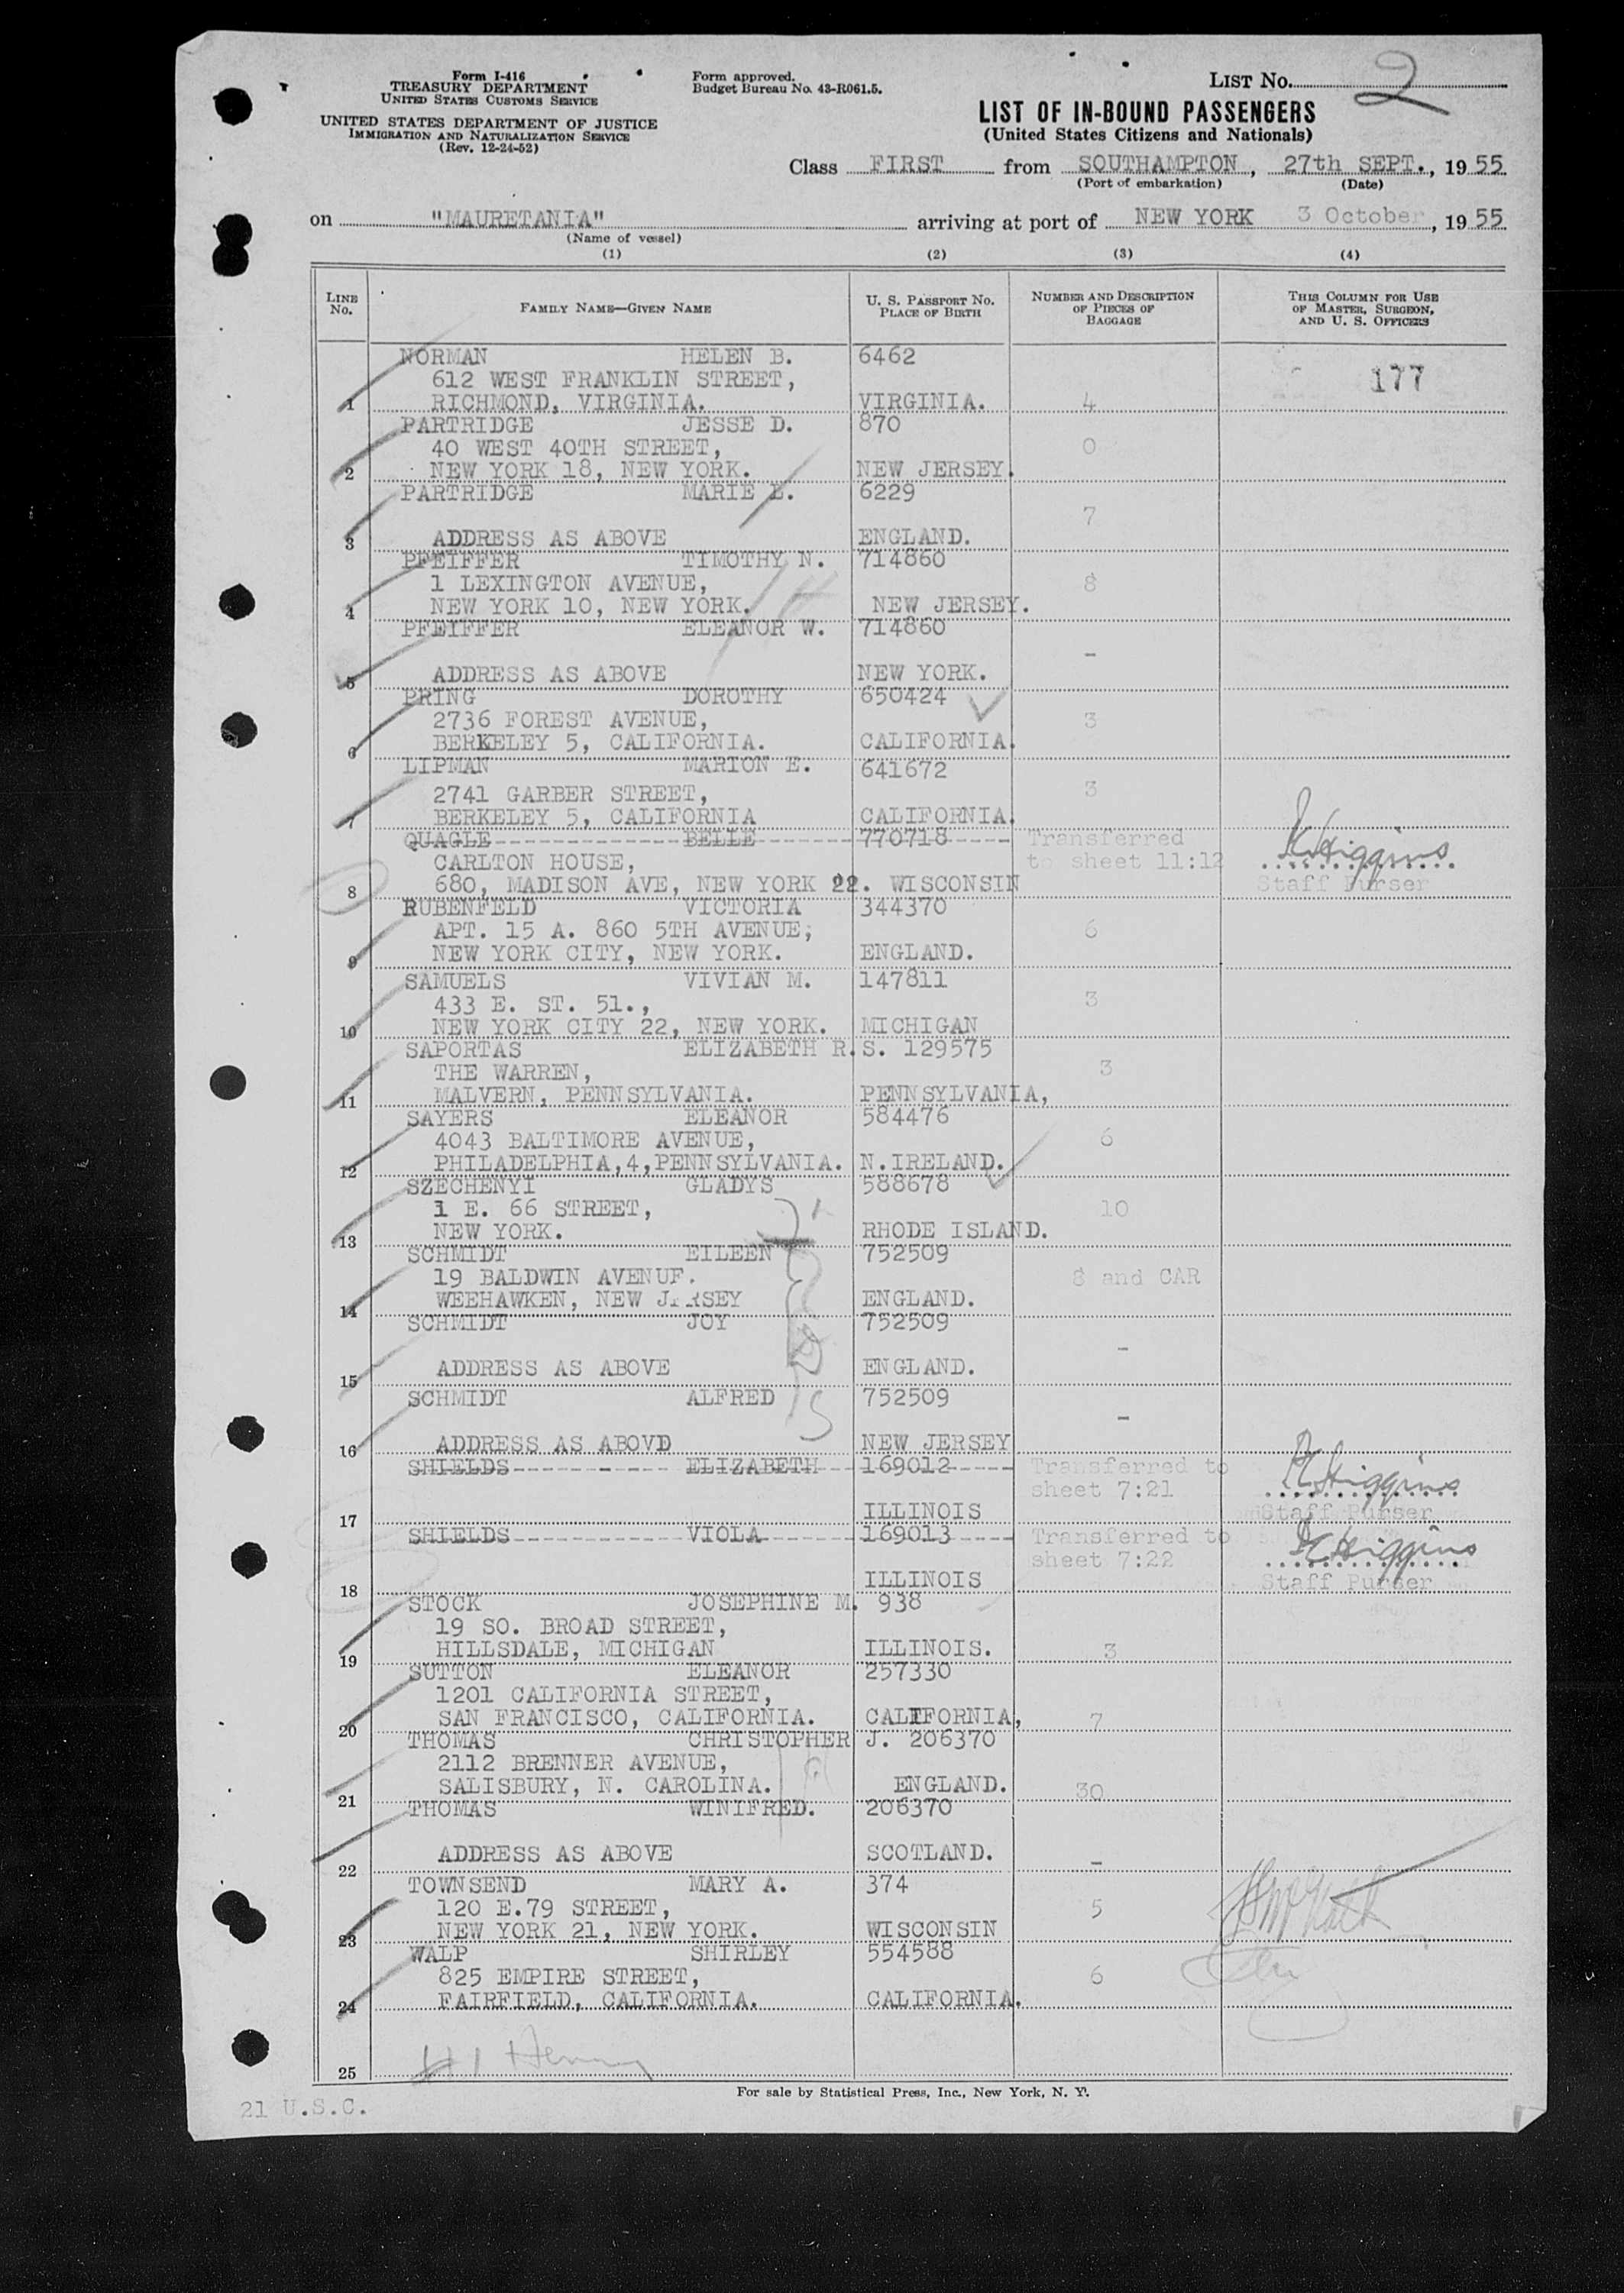 Form I-416
TREASURY DEPARTMENT
UNITED STATES CUSTOMS SERVICE
UNITED STATES DEPARTMENT OF JUSTICE
IMMIGRATION AND NATURALIZATION SERVICE
(Rev. 12-24-52)
Form approved.
Budget Bureau No. 43-R061.5.
LIST No. 2
LIST OF IN-BOUND PASSENGERS
(United States Citizens and Nationals)
Class FIRST from SOUTHAMPTON, 27th SEPT., 1955
(Port of embarkation) (Date)
on "MAURETANIA" arriving at port of NEW YORK 3 October, 1955
(Name of vessel)
(1) (2) (3) (4)
LINE No. FAMILY NAME—GIVEN NAME U. S. PASSPORT No. PLACE OF BIRTH NUMBER AND DESCRIPTION OF PIECES OF BAGGAGE THIS COLUMN FOR USE OF MASTER, SURGEON, AND U. S. OFFICERS
NORMAN HELEN B. 6462
612 WEST FRANKLIN STREET, 177
1 RICHMOND, VIRGINIA. VIRGINIA. 4
PARTRIDGE JESSE D. 870
40 WEST 40TH STREET, 0
2 NEW YORK 18, NEW YORK. NEW JERSEY.
PARTRIDGE MARIE E. 6229
7
3 ADDRESS AS ABOVE ENGLAND.
PFEIFFER TIMOTHY N. 714860
1 LEXINGTON AVENUE, 8
4 NEW YORK 10, NEW YORK. NEW JERSEY.
PFEIFFER ELEANOR W. 714860
-
5 ADDRESS AS ABOVE NEW YORK.
PRING DOROTHY 650424
2736 FOREST AVENUE, 3
6 BERKELEY 5, CALIFORNIA. CALIFORNIA.
LIPMAN MARION E. 641672
2741 GARBER STREET, 3
7 BERKELEY 5, CALIFORNIA CALIFORNIA.
QUAGLE BELLE 770718 Transferred
CARLTON HOUSE, to sheet 11:12 Higgins
8 680, MADISON AVE, NEW YORK 22. WISCONSIN Staff Purser
RUBENFELD VICTORIA 344370
APT. 15 A. 860 5TH AVENUE; 6
9 NEW YORK CITY, NEW YORK. ENGLAND.
SAMUELS VIVIAN M. 147811
433 E. ST. 51., 3
10 NEW YORK CITY 22, NEW YORK. MICHIGAN
SAPORTAS ELIZABETH R.S. 129575
THE WARREN, 3
11 MALVERN, PENNSYLVANIA. PENNSYLVANIA,
SAYERS ELEANOR 584476
4043 BALTIMORE AVENUE, 6
12 PHILADELPHIA,4,PENNSYLVANIA. N.IRELAND.
SZECHENYI GLADYS 588678
1 E. 66 STREET, 10
13 NEW YORK. RHODE ISLAND.
SCHMIDT EILEEN 752509
19 BALDWIN AVENUE. 8 and CAR
14 WEEHAWKEN, NEW JERSEY ENGLAND.
SCHMIDT JOY 752509
-
15 ADDRESS AS ABOVE ENGLAND.
SCHMIDT ALFRED 752509
-
16 ADDRESS AS ABOVD NEW JERSEY
SHIELDS ELIZABETH 169012 Transferred to
sheet 7:21 Higgins
17 ILLINOIS Staff Purser
SHIELDS VIOLA 169013 Transferred to
sheet 7:22 Higgins
18 ILLINOIS Staff Purser
STOCK JOSEPHINE M. 938
19 SO. BROAD STREET,
19 HILLSDALE, MICHIGAN ILLINOIS. 3
SUTTON ELEANOR 257330
1201 CALIFORNIA STREET,
20 SAN FRANCISCO, CALIFORNIA. CALIFORNIA, 7
THOMAS CHRISTOPHER J. 206370
2112 BRENNER AVENUE,
21 SALISBURY, N. CAROLINA. ENGLAND. 30
THOMAS WINIFRED. 206370
22 ADDRESS AS ABOVE SCOTLAND. -
TOWNSEND MARY A. 374
120 E.79 STREET, 5
23 NEW YORK 21, NEW YORK. WISCONSIN
WALP SHIRLEY 554588
825 EMPIRE STREET, 6
24 FAIRFIELD, CALIFORNIA. CALIFORNIA.
25 Henry
For sale by Statistical Press, Inc., New York, N. Y.
21 U.S.C.